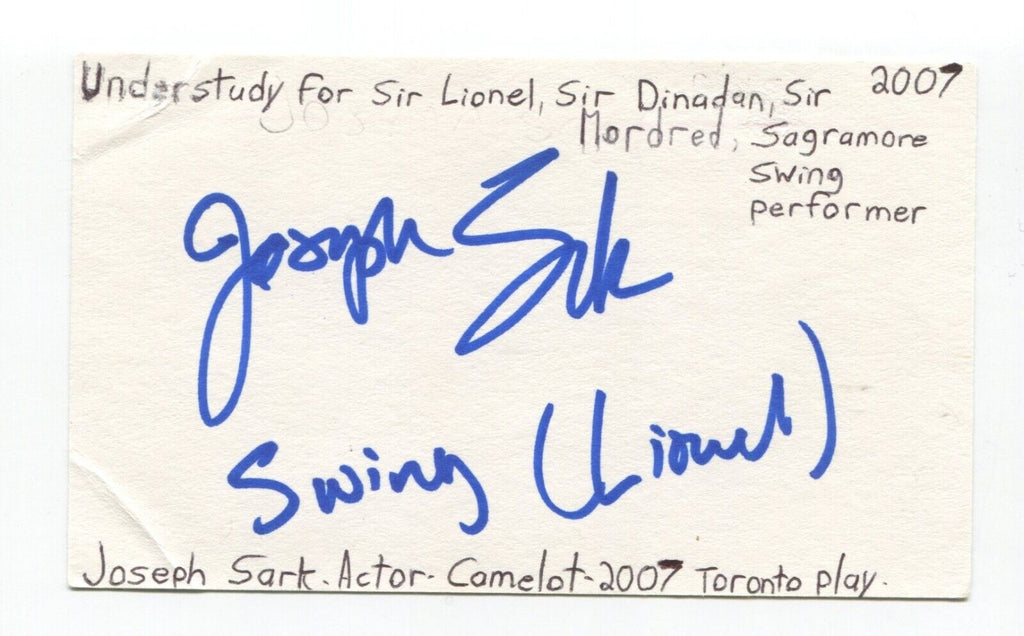 Understudy for Sir Lionel, Sir Dinadan, Sir 2007
Mordred, Sagramore
Swing
performer
Joseph Sark
Swing (Lionel)
Joseph Sark. Actor - Camelot - 2007 Toronto play.